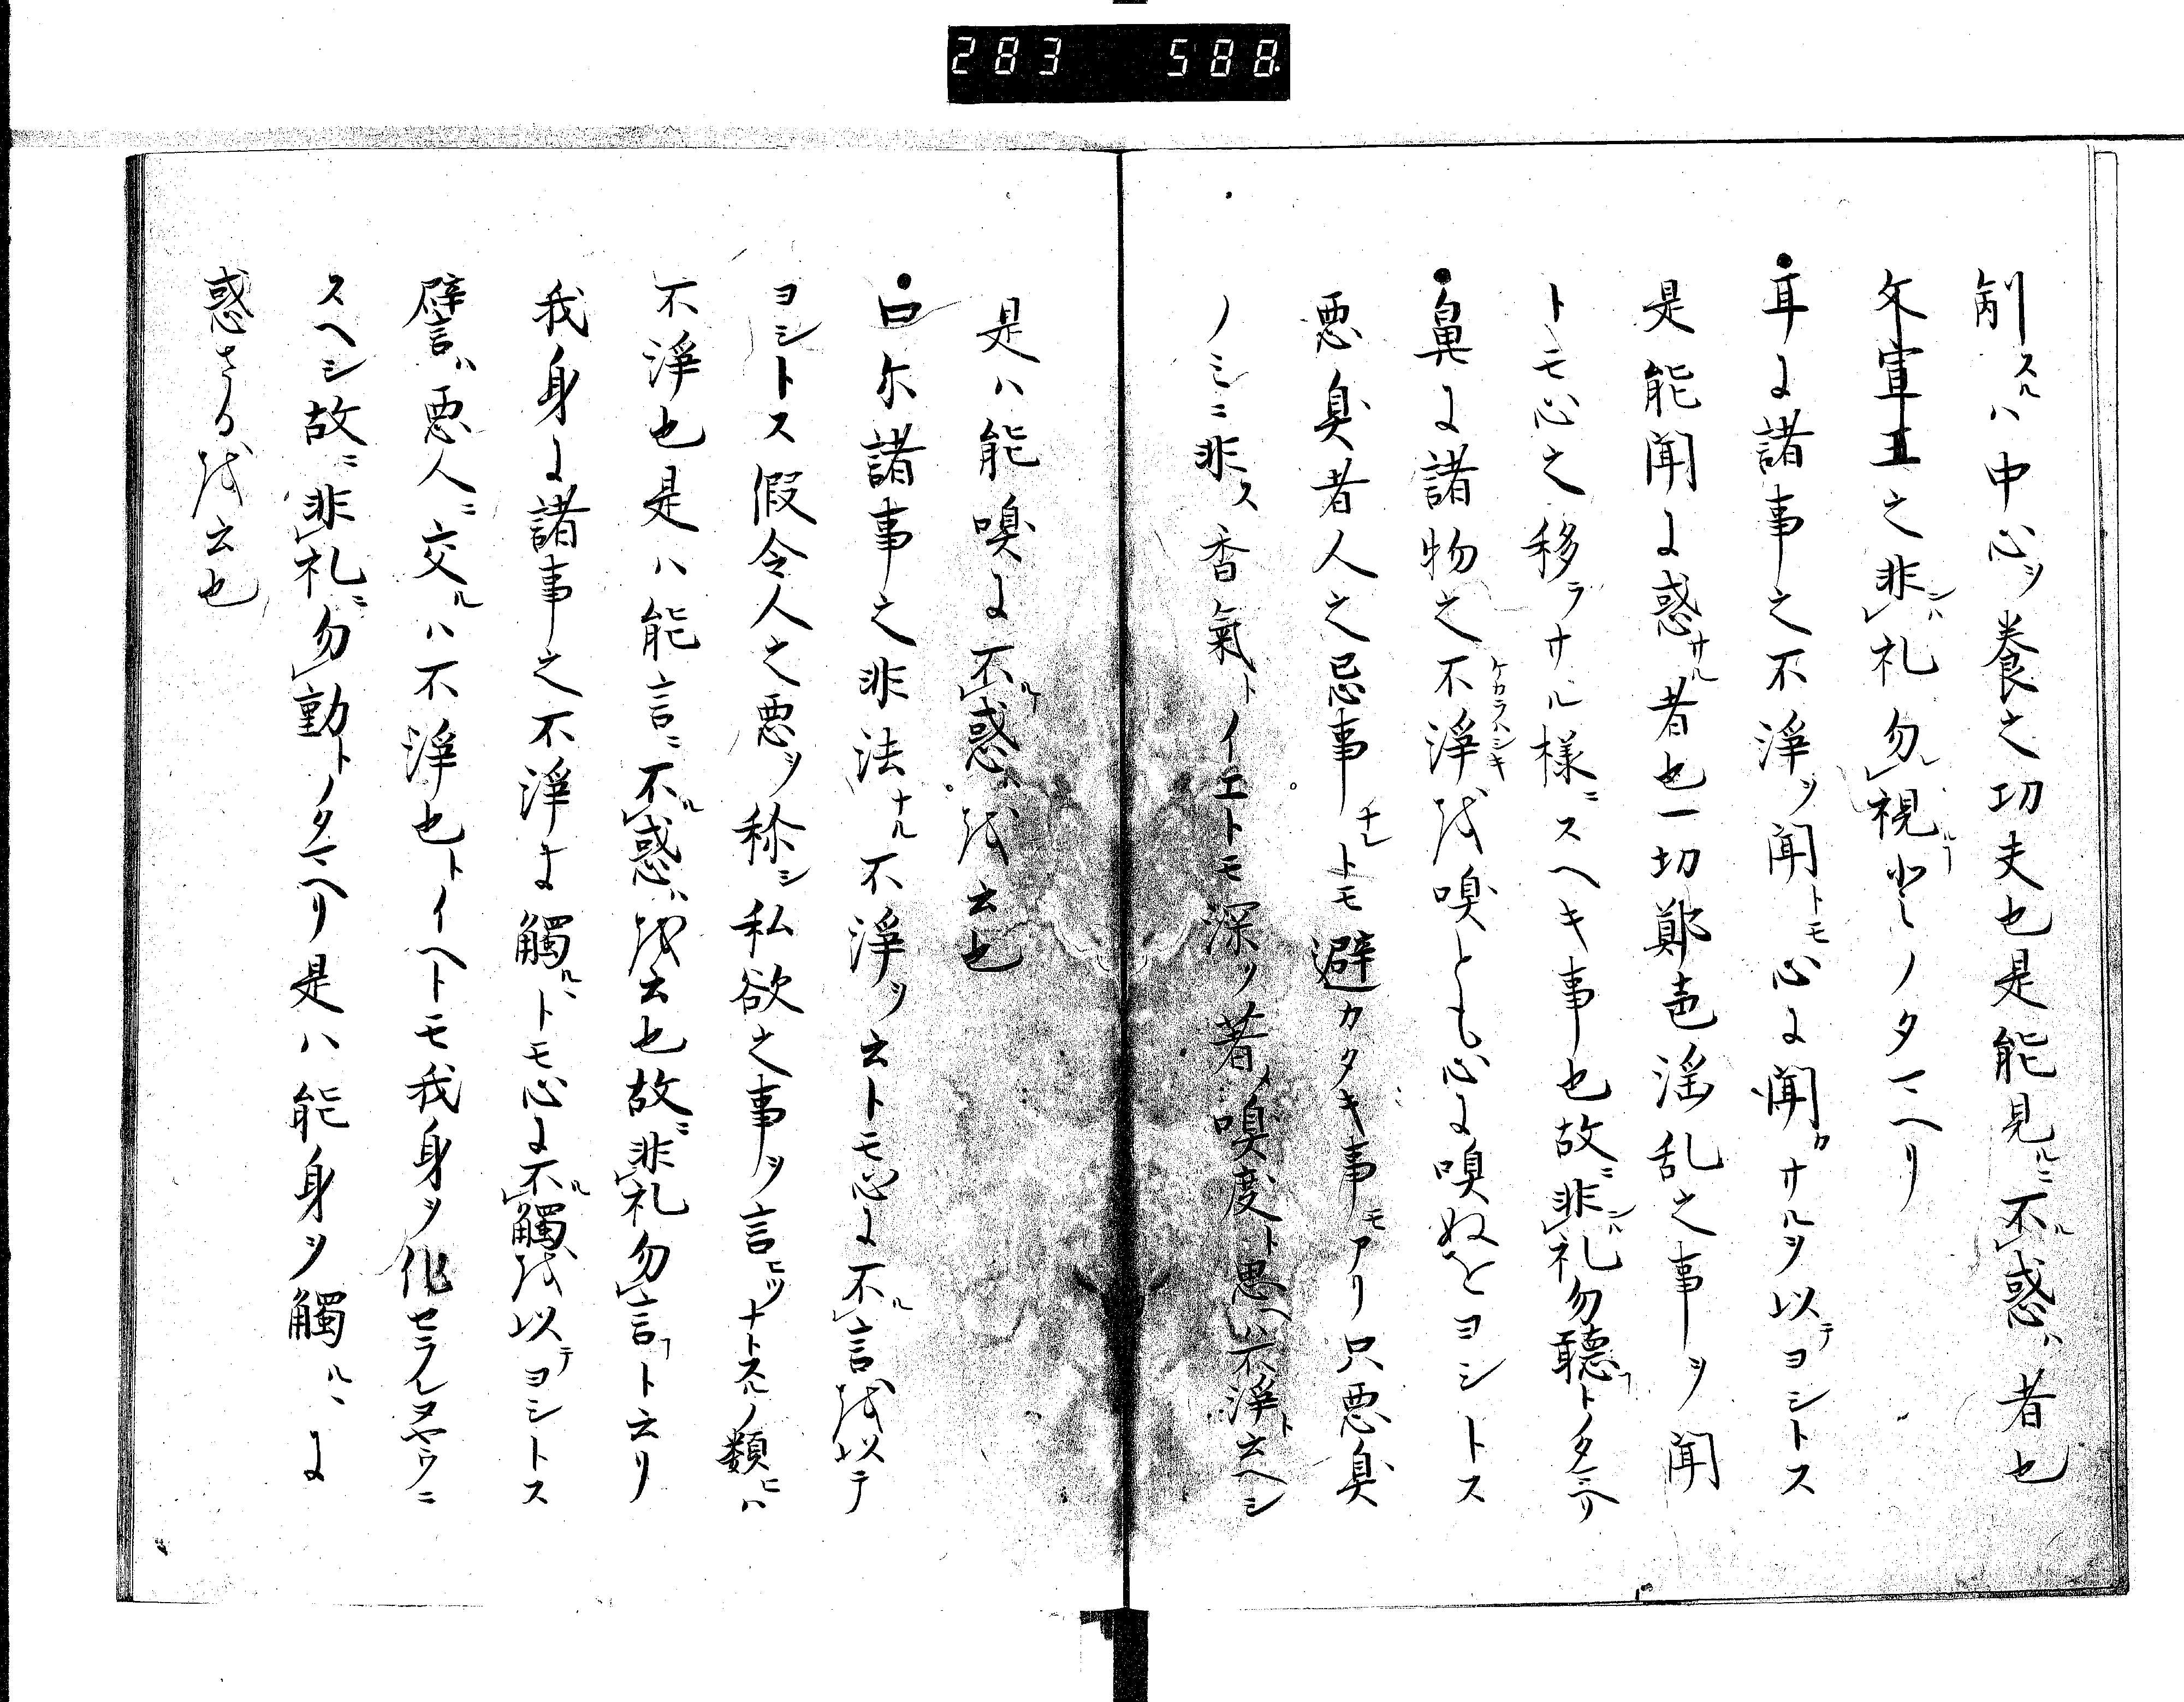 283 588.
制スルハ中心ヲ養之功夫也是能見ルニ不惑ハ者也
文宣王之非礼勿視トノタマヘリ
耳ニ諸事之不浄ヲ聞トモ心ニ聞カサルヲ以テヨシトス
是能聞ニ惑サル者也一切鄭声淫乱之事ヲ聞
トモ心之移ラサル様ニスヘキ事也故ニ非礼勿聴トノタマヘリ
鼻ニ諸物之不浄ケカラハシキ越嗅とも心ニ嗅ぬをヨシトス
悪臭者人之忌事ナレトモ避カタキ事モアリ只悪臭
ノミニ非ス香気トイエトモ深ク着メ嗅度ト思ヘハ不浄ト云ヘシ
是ハ能嗅ニ不惑越云也
口尓諸事之非法ナル不浄ヲ云トモ心ニ不言越以テ
ヨシトス仮令人之悪ヲ称シ私欲之事ヲ言ヒツナトスルノ類ヒハ
不浄也是ハ能言ニ不惑越云也故ニ非礼勿言ト云リ
我身ニ諸事之不浄ニ觸ルトモ心ニ不觸越以テヨシトス
譬言ハ悪人ニ交ルハ不浄也トイヘトモ我身ヲ化セラレヌヤウニ
スヘシ故ニ非礼ニ勿動トノタマヘリ是ハ能身ヲ觸ルニ
惑さる越云也